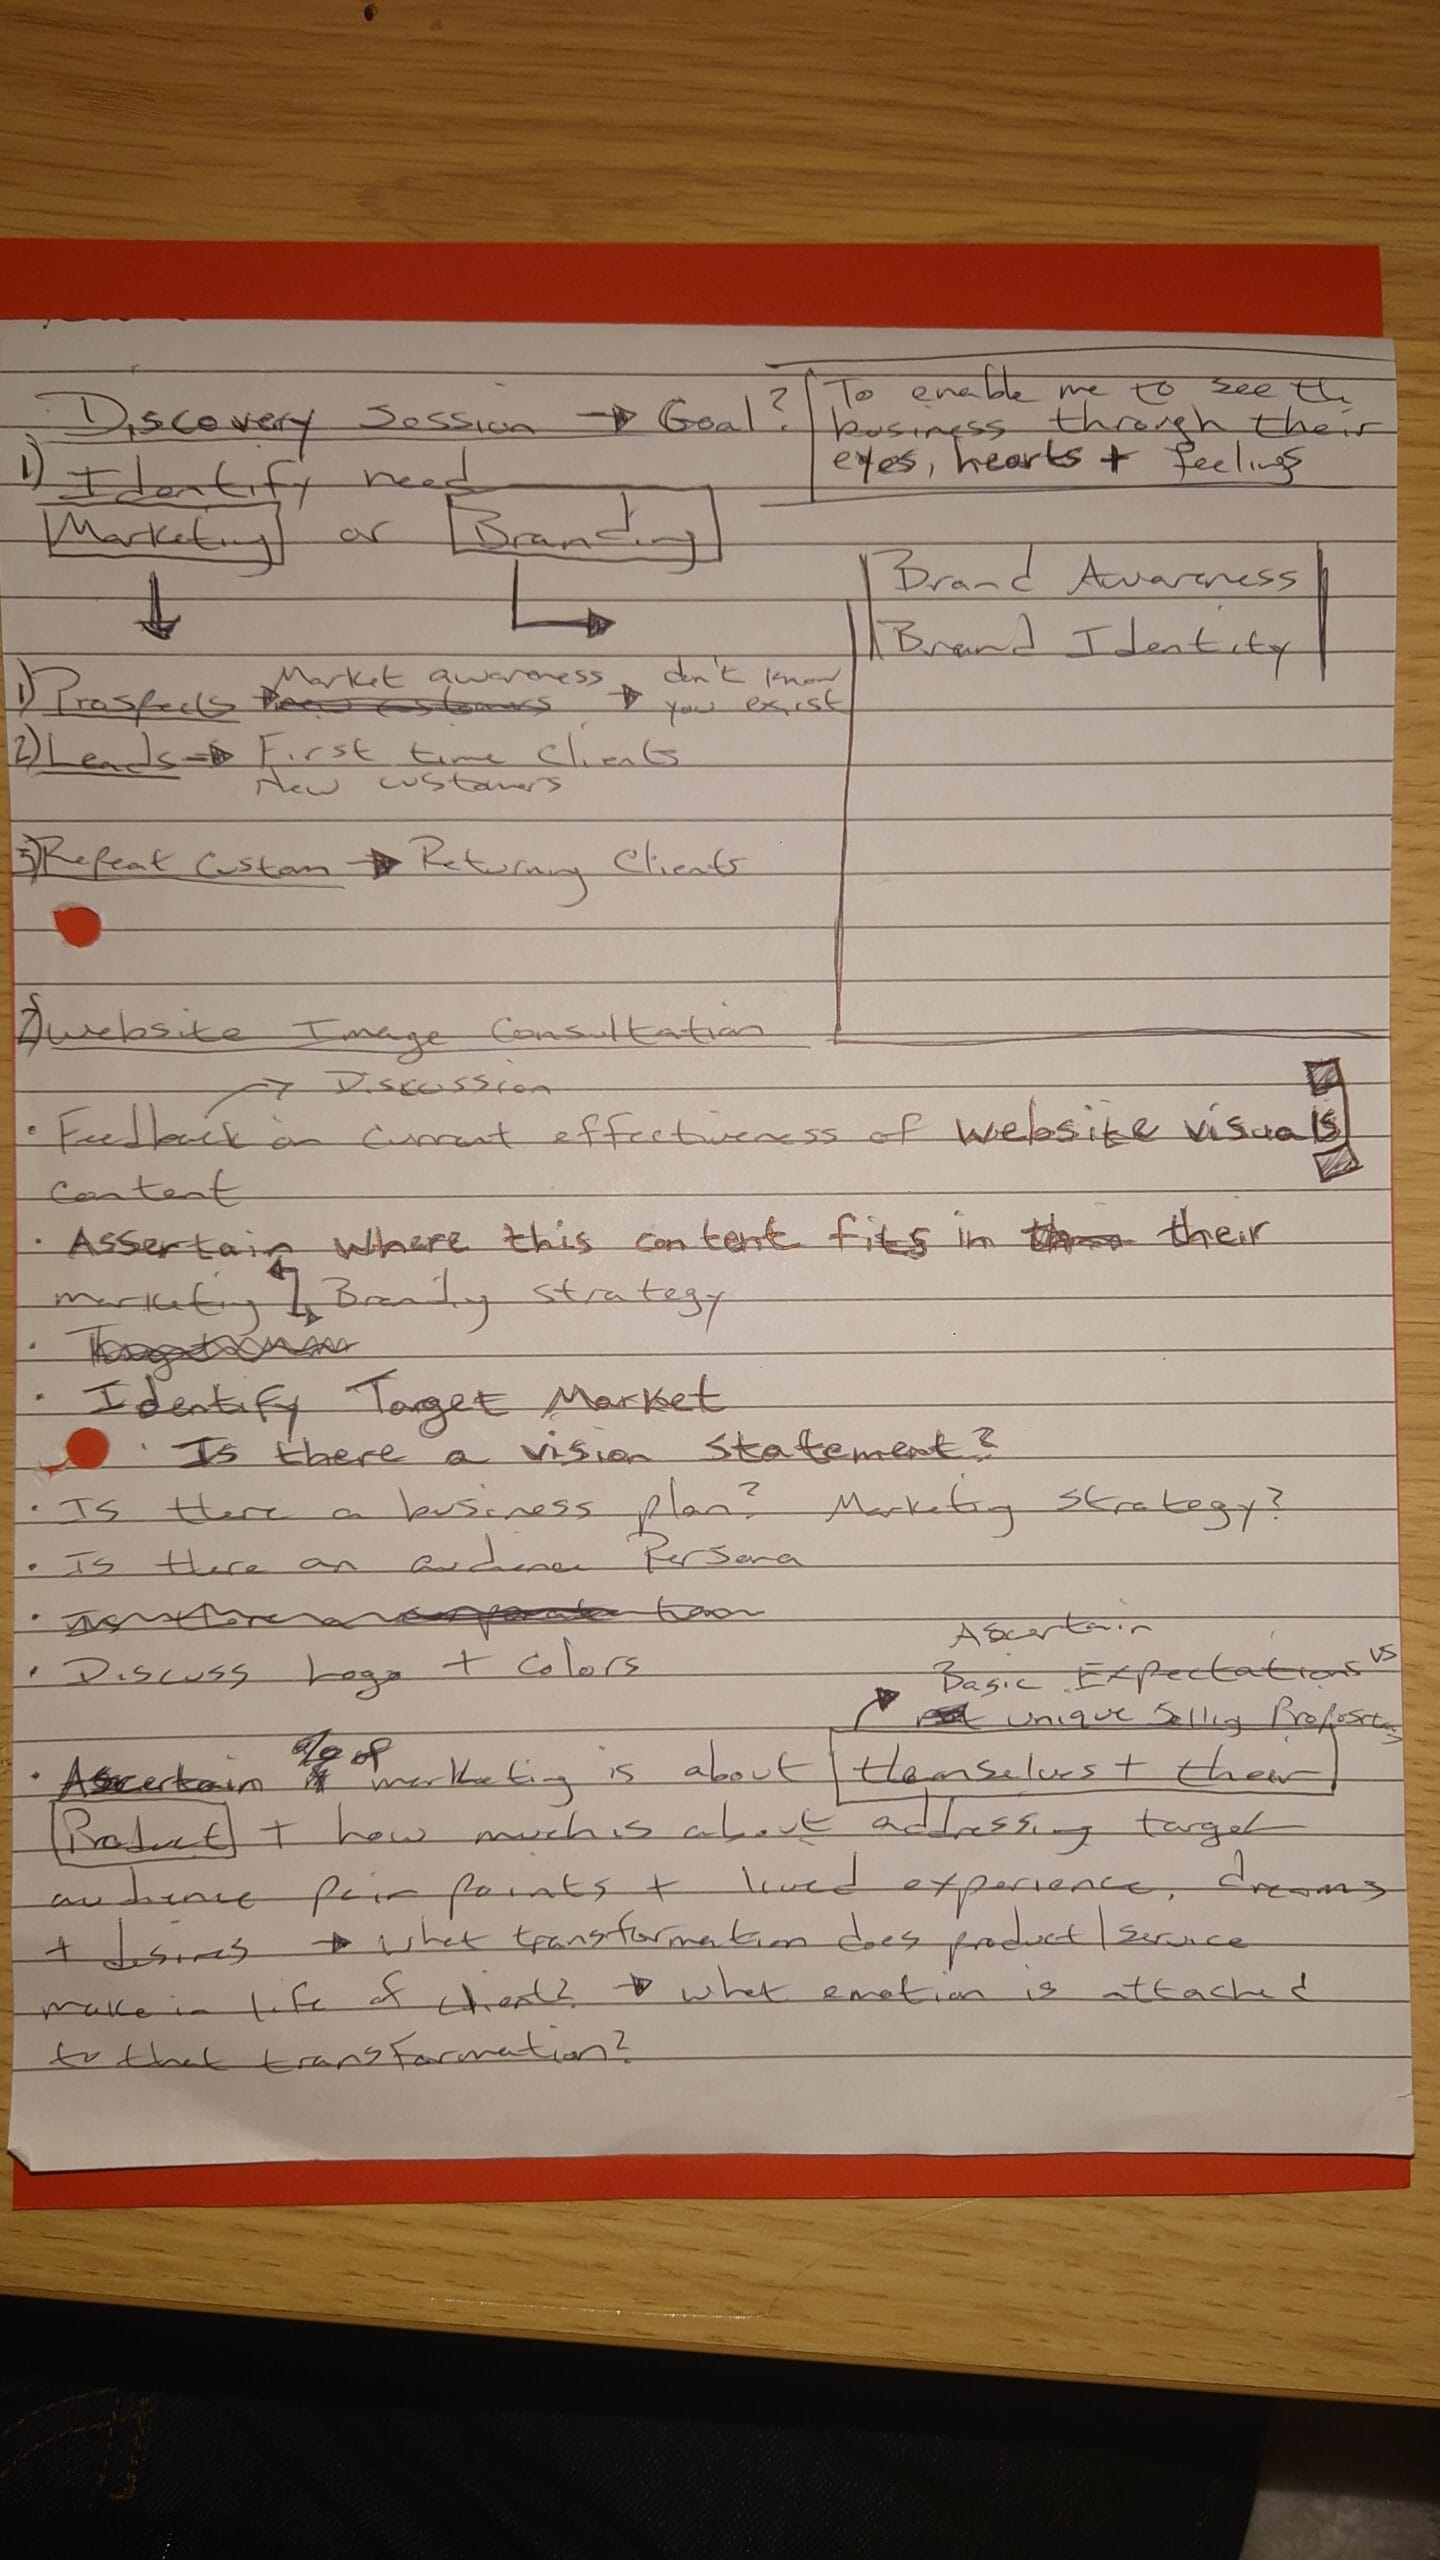 Discovery Session → Goal?
To enable me to see the
business through their
eyes, hearts + feelings
1) Identify need
Marketing or Branding
Brand Awareness
Brand Identity
1) Prospects → new customers Market awareness → don't know
you exist
2) Leads → First time Clients
New customers
3) Repeat Custom → Returning Clients
2) Website Image Consultation
→ Discussion
· Feedback on current effectiveness of website visuals
content
· Assertain where this content fits in their
marketing Branding strategy
· Identify Target Market
· Is there a vision statement?
· Is there a business plan? Marketing strategy?
· Is there an audience Persona
· Is there a corporate
· Discuss Logo + Colors
Ascertain
Basic Expectations vs
unique Selling Proposition
· Ascertain % of marketing is about themselves + their
Product + how much is about addressing target
audience pain points + lived experience, dreams
+ desires → what transformation does product/service
make in life of client? → what emotion is attached
to that transformation?